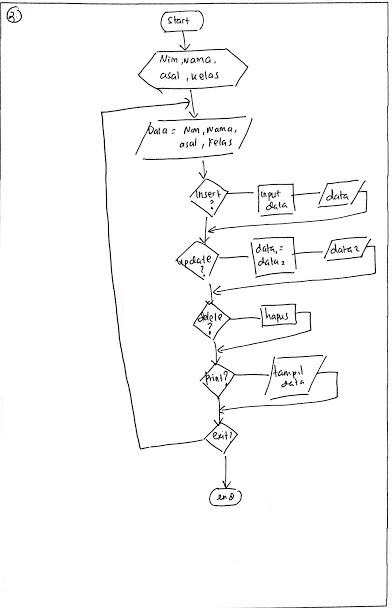 2.
Start
Nim, Nama,
asal, kelas
Data = Nim, Nama,
asal, kelas
Insert
?
input
data
data
update
?
data1 =
data2
data 2
delete
?
hapus
print?
tampil
data
exit?
end